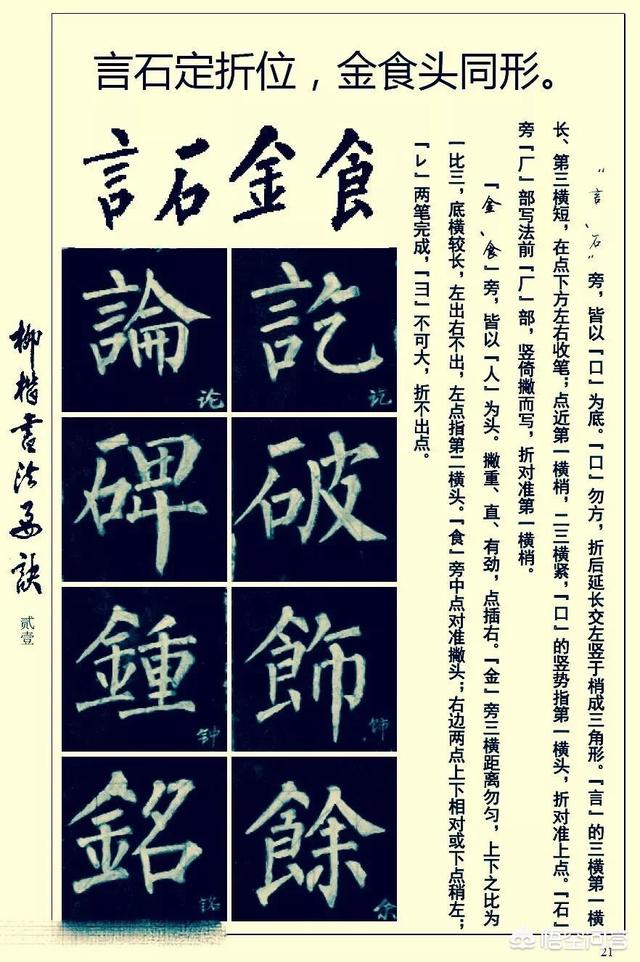 言石定折位，金食头同形。
言石金食
“言、石”旁，皆以「口」为底。「口」勿方，折后延长交左竖于梢成三角形。「言」的三横第一横
长、第三横短，在点下方左右收笔；点近第一横梢，二三横紧，「口」的竖势指第一横头，折对准上点。「石」
旁「厂」部写法前「厂」部，竖倚撇而写，折对准第一横梢。
「金、食」旁，皆以「人」为头。撇重、直、有劲，点插右。「金」旁三横距离勿匀，上下之比为
一比三，底横较长，左出右不出，左点指第二横头。「食」旁中点对准撇头；右边两点上下相对或下点稍左；
「レ」两笔完成，「彐」不可大，折不出点。
論 论
訖 讫
碑
破
鍾 钟
飾 饰
銘 铭
餘 余
柳楷书法要诀
贰壹
21
悟空问答